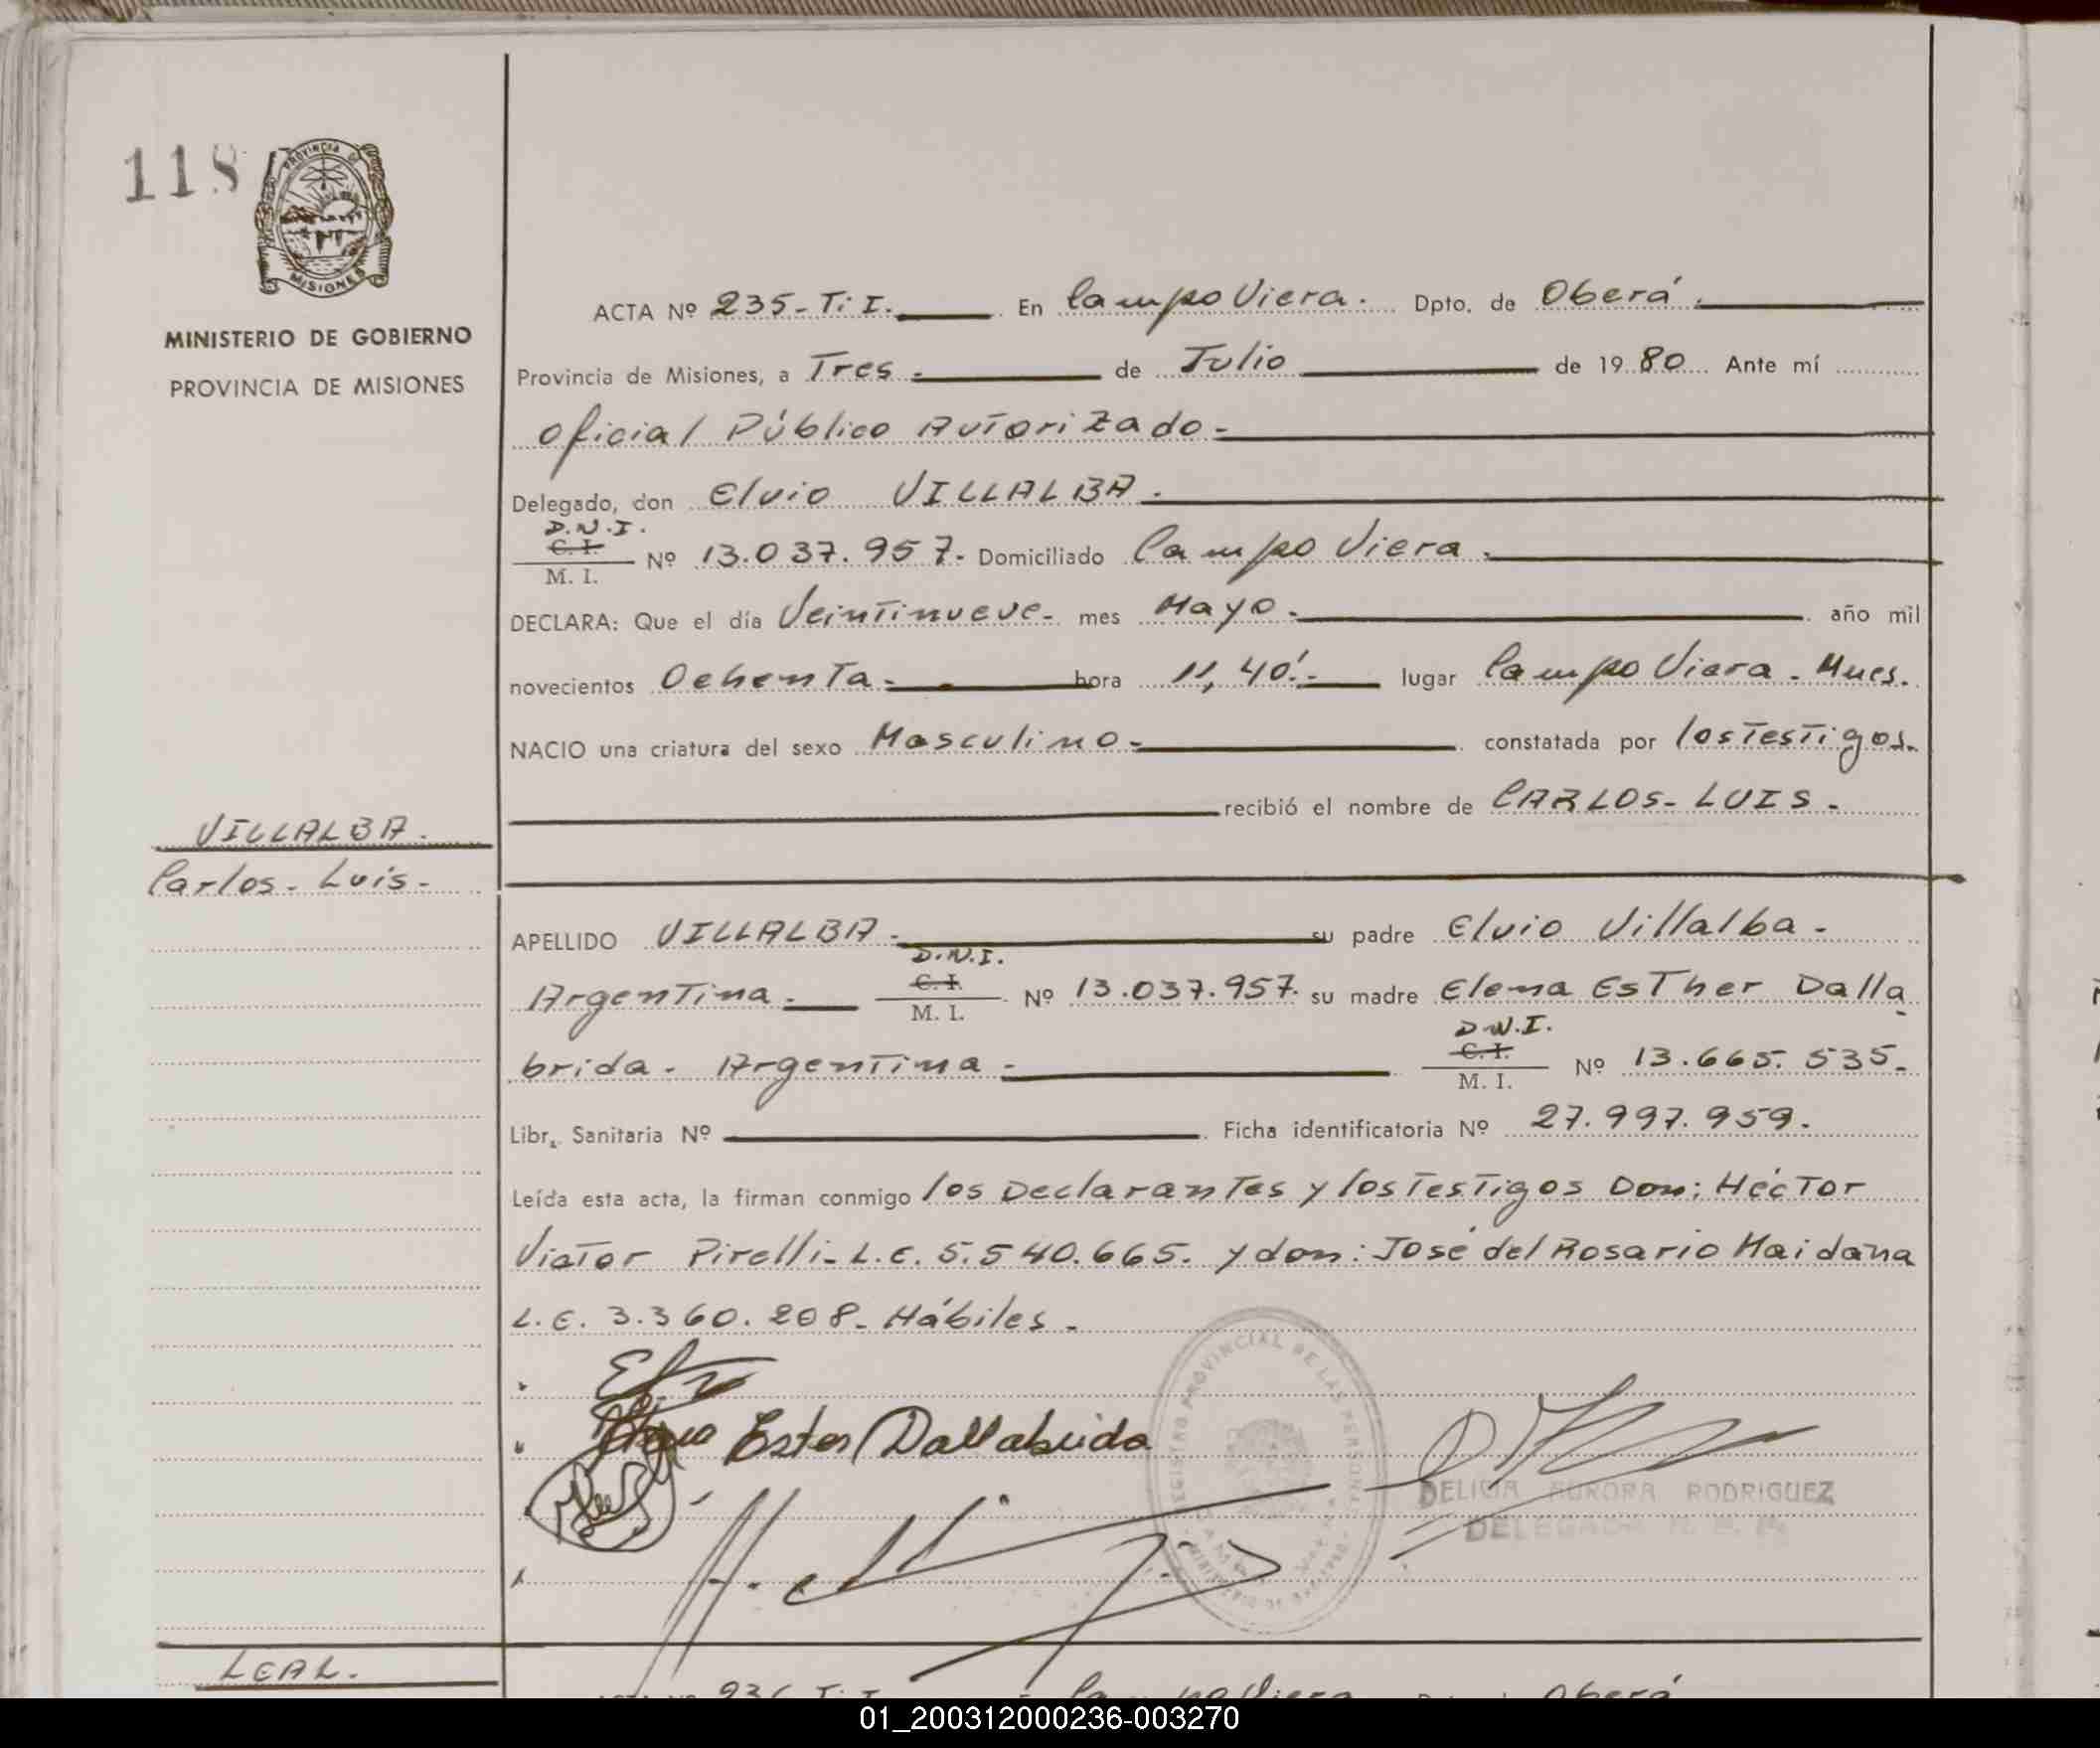 118
PROVINCIA DE
MISIONES
MINISTERIO DE GOBIERNO
PROVINCIA DE MISIONES
ACTA Nº 235-T: I. En Campo Viera. Dpto. de Oberá.
Provincia de Misiones, a Tres. de Julio de 1980 Ante mí
Oficial Público Autorizado-
Delegado, don Elvio VILLALBA.
D.N.I.
C. I.
M. I. Nº 13.037.957- Domiciliado Campo Viera.
DECLARA: Que el día Veintinueve- mes Mayo- año mil
novecientos Ochenta- hora 11,40'- lugar Campo Viera. Mnes.
NACIO una criatura del sexo Masculino- constatada por los Testigos.
recibió el nombre de CARLOS- LUIS.
VILLALBA.
Carlos- Luis-
APELLIDO VILLALBA- su padre Elvio Villalba-
D.N.I.
Argentina- C. I. M. I. Nº 13.037.957. su madre Elena Esther Dalla
D.N.I.
brida- Argentina- C. I. M. I. Nº 13.665.535-
Libr. Sanitaria Nº Ficha identificatoria Nº 27.997.959.
Leída esta acta, la firman conmigo los Declarantes y los Testigos Don: Héctor
Victor Pirelli- L.E. 5.540.665. y don: José del Rosario Maidana
L.E. 3.360.208- Hábiles-
Ester Dallabrida
REGISTRO PROVINCIAL DE LAS PERSONAS
DELICIA AURORA RODRIGUEZ
DELEGADA
LEAL.
Campo Viera Oberá
01_200312000236-003270